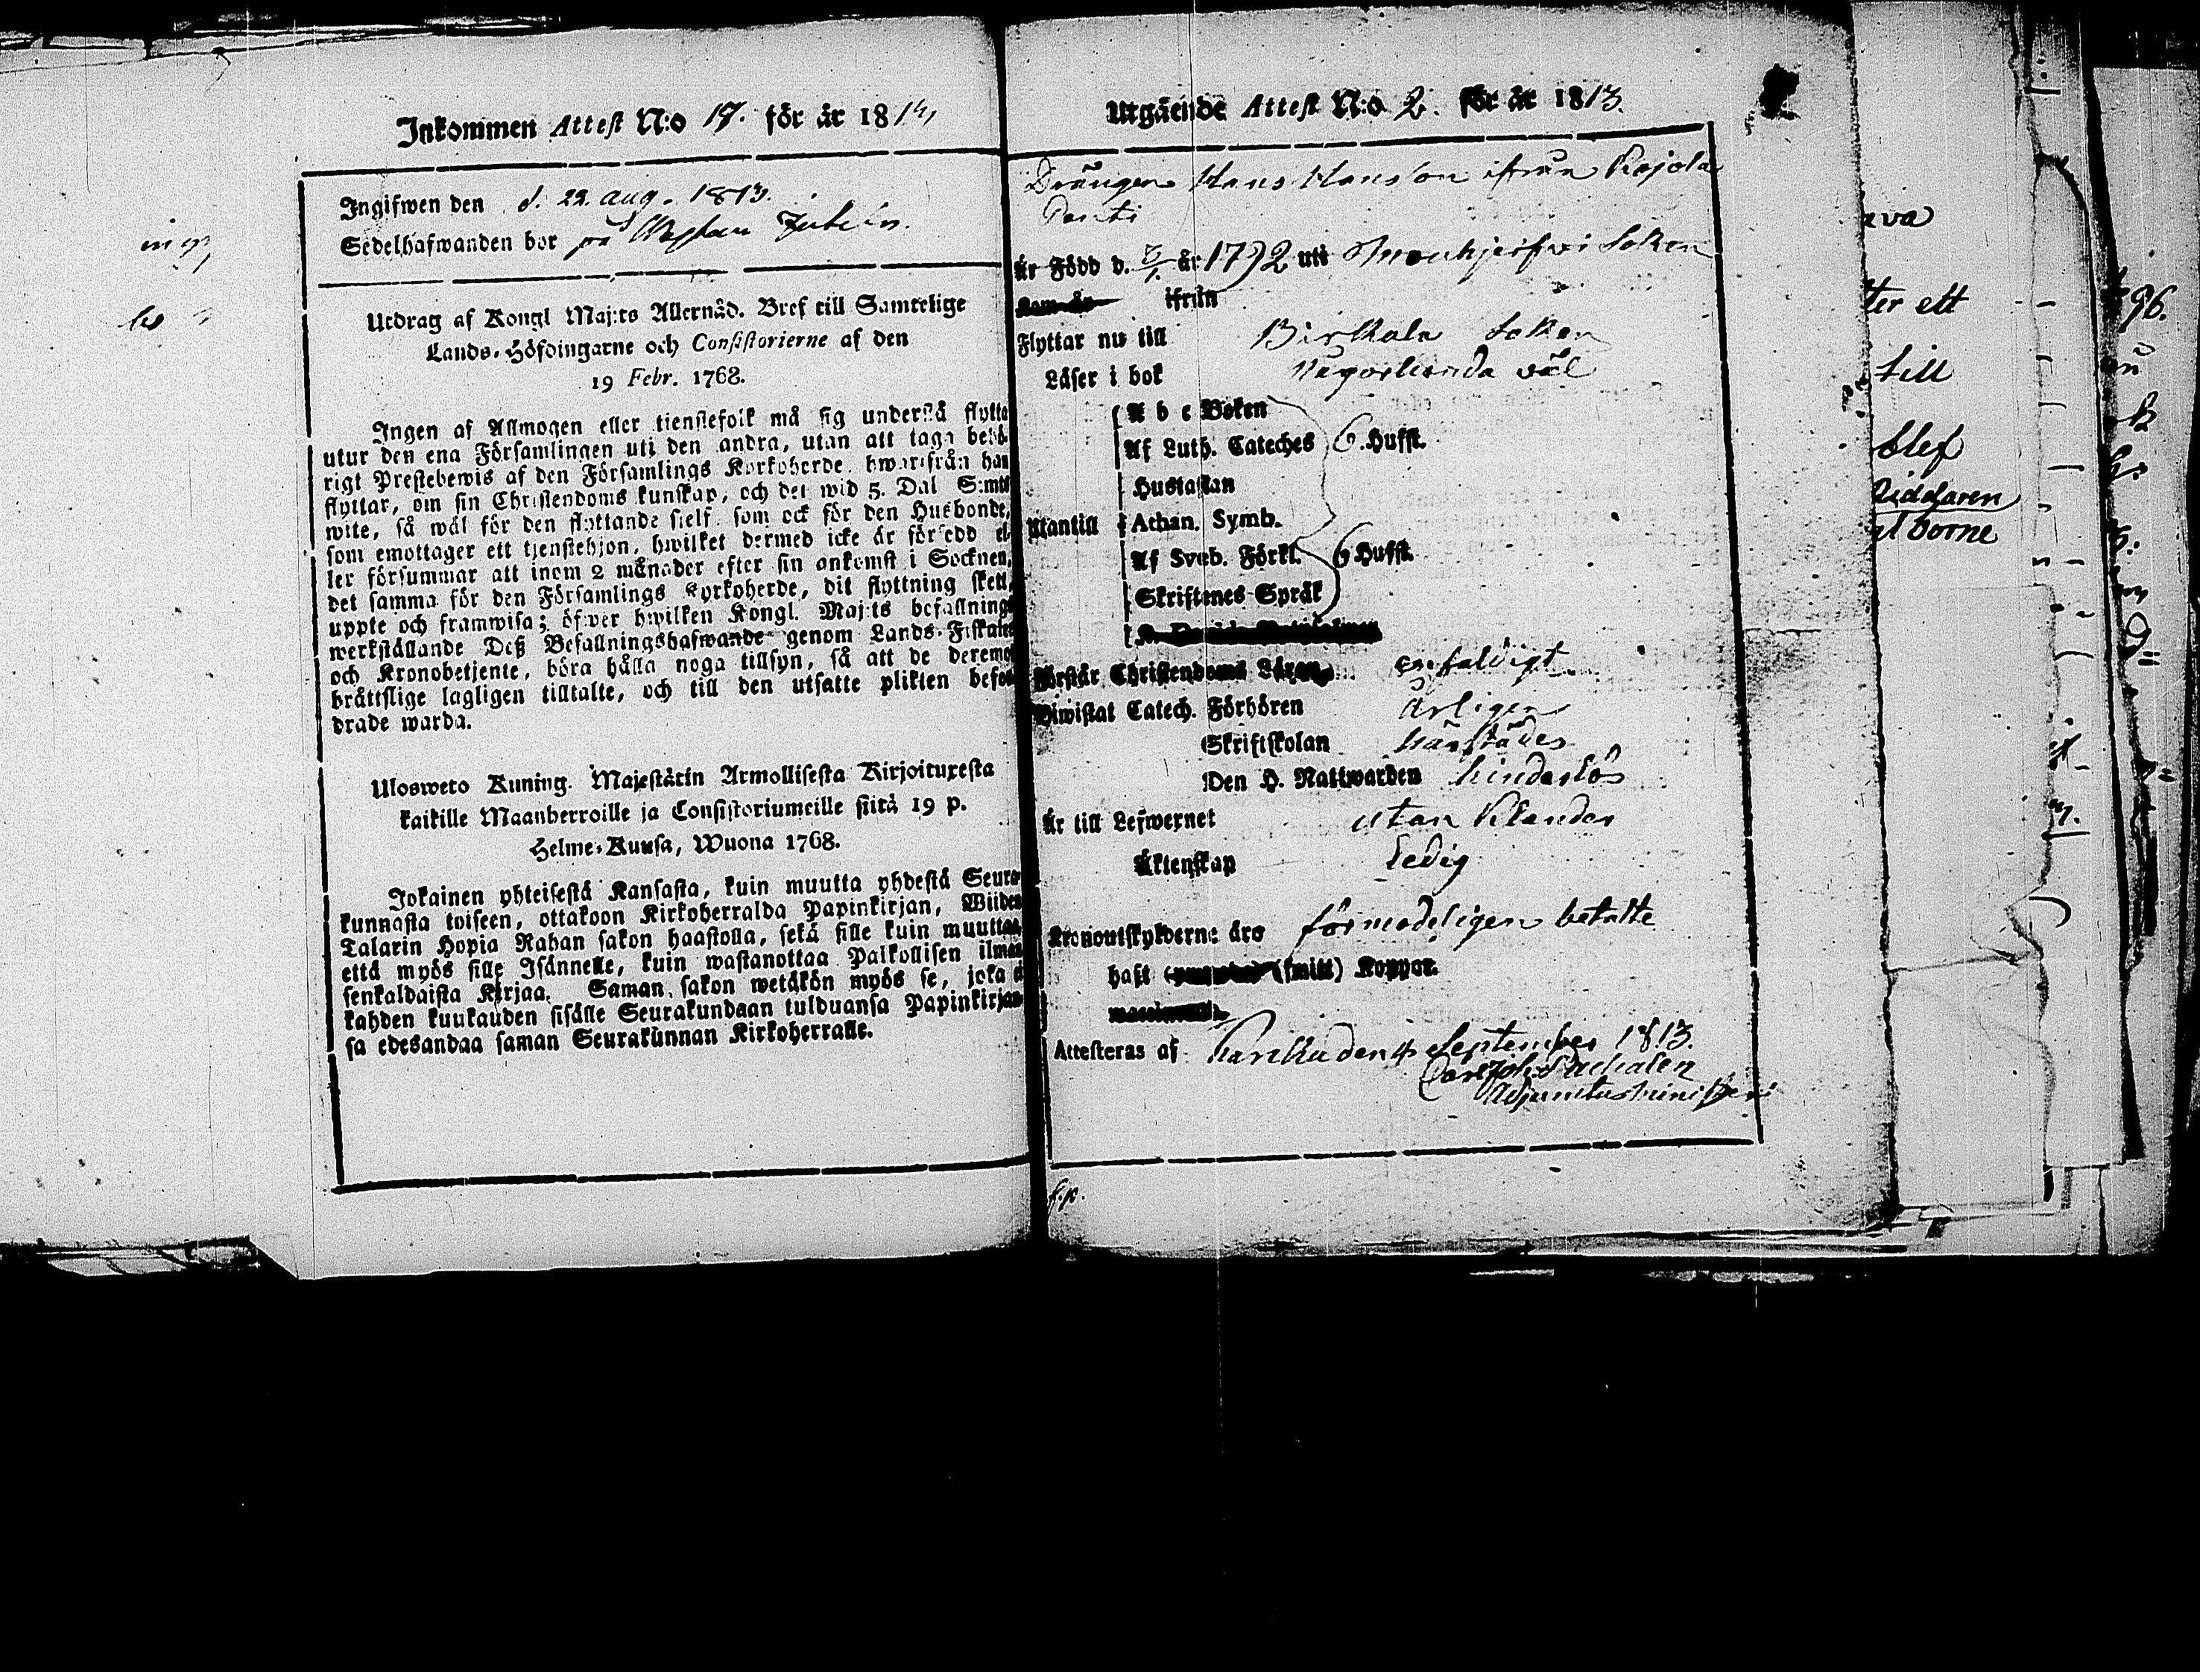 Inkommen Attest N:o 17. för år 1814,
Ingifwen den d. 22. aug. 1813.
Sedelhafwanden bor på
Utdrag af Kongl Maj:ts Allernåd. Bref till Samtelige
Lands-Höfdingarne och Consistorierne af den
19 Febr. 1768.
Ingen af Allmogen eller tienstefolk må sig understå flytta
utur den ena Församlingen uti den andra, utan att taga behö-
rigt Prestebewis af den Församlings Kyrkoherde, hwarifrån han
flyttar, om sin Christendoms kunskap, och det wid 5. Dal S:mts
wite, så wäl för den flyttande sielf, som ock för den Husbonde,
som emottager ett tjenstehjon, hwilket dermed icke är försedd el-
ler försummar att inom 2 månader efter sin ankomst i Socknen,
det samma för den Församlings Kyrkoherde, dit flyttning skett,
uppte och framwisa; öfwer hwilken Kongl. Maj:ts befallning
werkställande Deß Befallningshafwande genom Lands-Fiskaler
och Kronobetjente, böra hålla noga tillsyn, så att de deremot
bråttslige lagligen tilltalte, och till den utsatte plikten befor-
drade warda.
Ulosweto Kuning. Majestätin Armollisesta Kirjoituxesta
kaikille Maanherroille ja Consistoriumeille siitä 19 p.
Helme-Kuusa, Wuona 1768.
Jokainen yhteisestä Kansasta, kuin muutta yhdestä Seura-
kunnasta toiseen, ottakoon Kirkoherralda Papinkirjan, Wiiden
Talarin Hopia Rahan sakon haastolla, sekä sille kuin muuttaa,
että myös sille Isännelle, kuin wastanottaa Palkollisen ilman
senkaldaista Kirjaa. Saman sakon wetäkön myös se, joka ei
kahden kuukauden sisälle Seurakundaan tulduansa Papinkirjan-
sa edesandaa saman Seurakunnan Kirkoherralle.
Utgående Attest N:o 2. för år 1813.
Drängen Hans Hansson ifrån Kojola
Pentti
Är Född d. 3/1. år 1792 uti Mouhijerfwi Soken
ifrån
Flyttar nu till Birkala Soken
Läser i bok Någorlunda väl
A b c Boken
Af Luth. Cateches 6. Hufst.
Hustaflan
Utantill Athan. Symb.
Af Sveb. Förkl. 6 Hufst.
Skriftenes Språk
Förstår Christendoms Läran enfaldigt
Biwistat Catech. Förhören Årligen
Skriftskolan härstädes
Den H. Nattwarden hinderlös
Är till Lefwernet utan Klander
Äktenskap Ledig
Kronoutskylderne äro förmodeligen betalte
haft (smitt) Koppor.
Attesteras af Karkku den 4 September 1813.
Adjunctus Ministerii